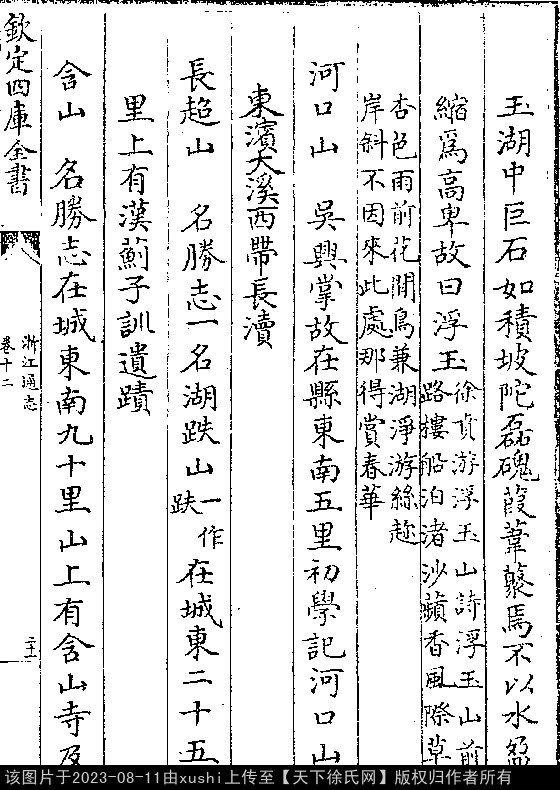 玉湖中巨石如積坡陀磊磈葭葦䕺焉不以水盈
縮爲高卑故曰浮玉
徐賁游浮玉山詩浮玉山前
路樓船泊渚沙蘋香風際草
杏色雨前花閒鳥兼湖淨游絲趂
岸斜不因來此處那得賞春華
河口山　吳興掌故在縣東南五里初學記河口山
東濱大溪西帶長瀆
長超山　名勝志一名湖趺山一作跌在城東二十五
里上有漢薊子訓遺蹟
含山　名勝志在城東南九十里山上有含山寺及
欽定四庫全書
浙江通志
卷十二
该图片于2023-08-11由xushi上传至【天下徐氏网】版权归作者所有